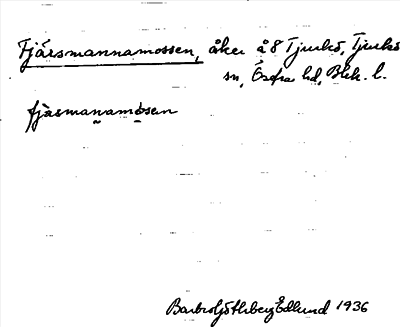 Fjärsmannamossen, åker å 8 Tjurkö, Tjurkö
sn, Östra hd, Blek. l.
fjäsmanamòsen
Barbro Göthberg Edlund 1936